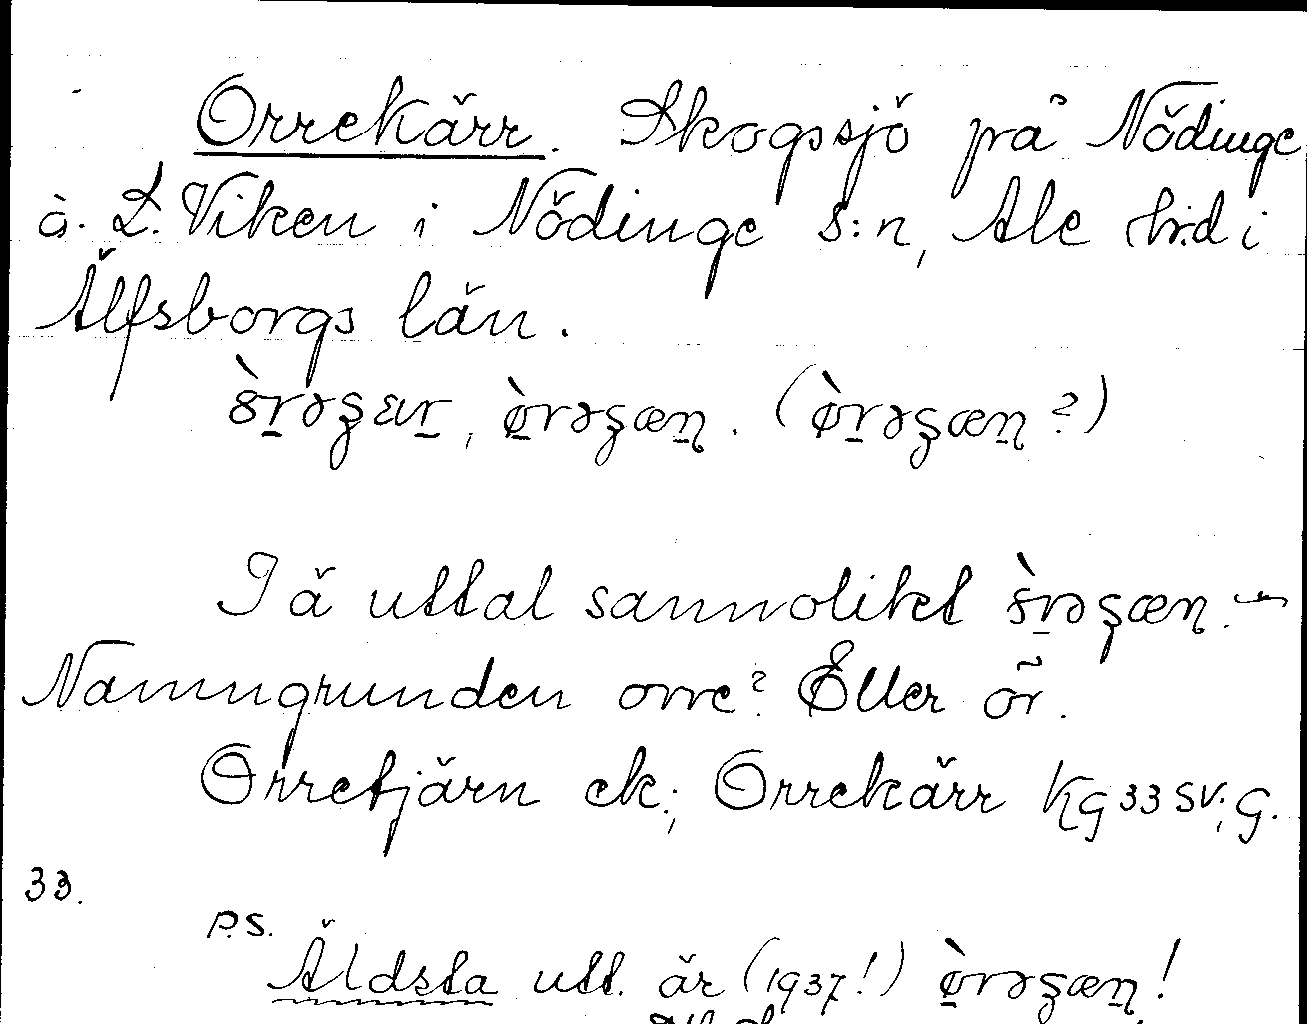 Orrekärr. Skogssjö på Nödinge
å. L. Viken i Nödinge s:n, Ale h:d i
Älfsborgs län.
òrəʂær, ø̀rəʂæn. (ø̀rəʂæn?)
I ä uttal sannolikt òrəʂæn.
Namngrunden orre? Eller ör.
Orretjärn ek.; Orrekärr Kg 33 SV; G.
33.
P.S.
Äldsta utt. är (1937!) ø̀rəʂæn!